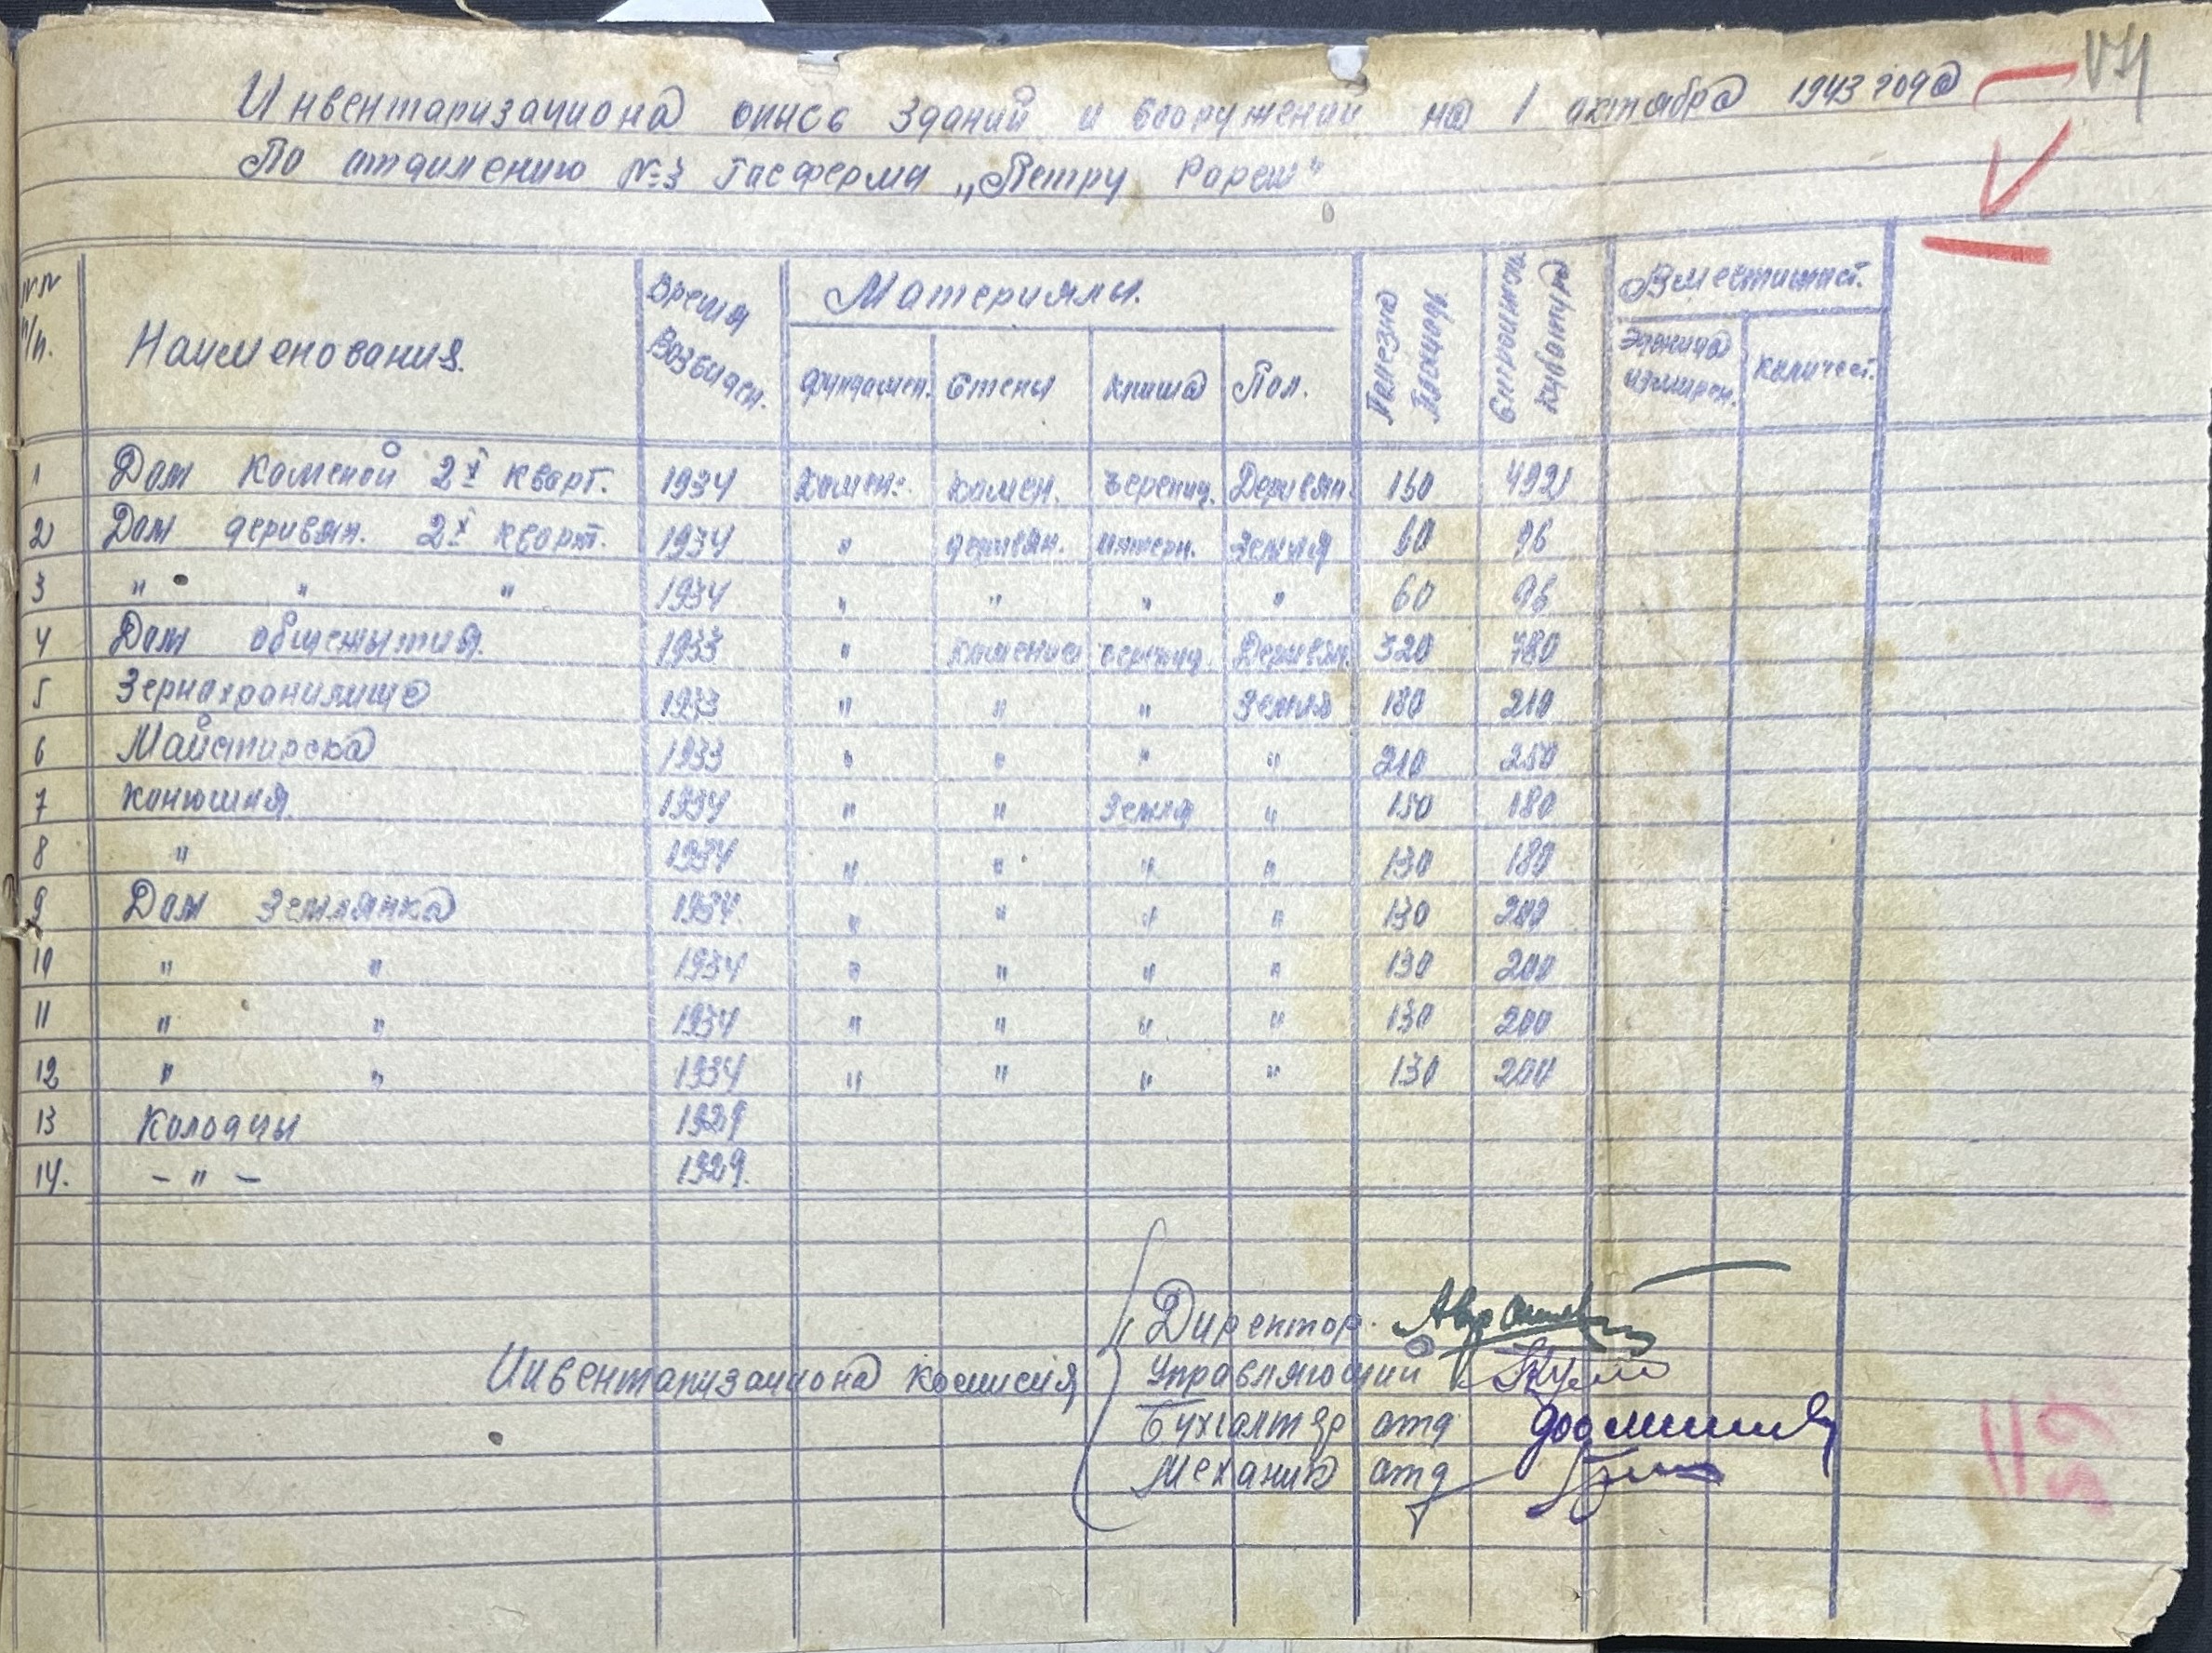 Инвентаризациона опись зданий и сооружений на 1 октября 1943 года
По отделению №3 Госферма „Петру Рареш"
№№ п/п. Наименования. Время Возвиден. Материялы. Полезна Площадь Строительн. Кубатура Вместимост.
Фундамен. Стены Крыша Пол. Эденица измирен. Количест.
1 Дом Каменой 2х кварт. 1934 Камен. Камен. Черепиц. Деривян. 492
2 Дом деривян. 2х кварт. 1934 " деривян. Земля 60 96
3 " " " 1934 " " " " 60 96
4 Дом общежытия. 1933 " черепиц. Деривян. 320 780
5 Зернохранилище 1933 " " " Земля 180 210
6 Майстирска 1933 " " " " 210 250
7 Конюшня. 1934 " " Земля " 180
8 " 1934 " " " " 130 180
9 Дом Землянка 1934 " " " " 130 200
10 " " 1934 " " " " 130 200
11 " " 1934 " " " " 130 200
12 " " 1934 " " " " 130 200
13 Колодцы 1929
14. – " – 1929.
Инвентаризациона комисия
Директор.
Управляющий
Бухгалтер отд
Механик отд